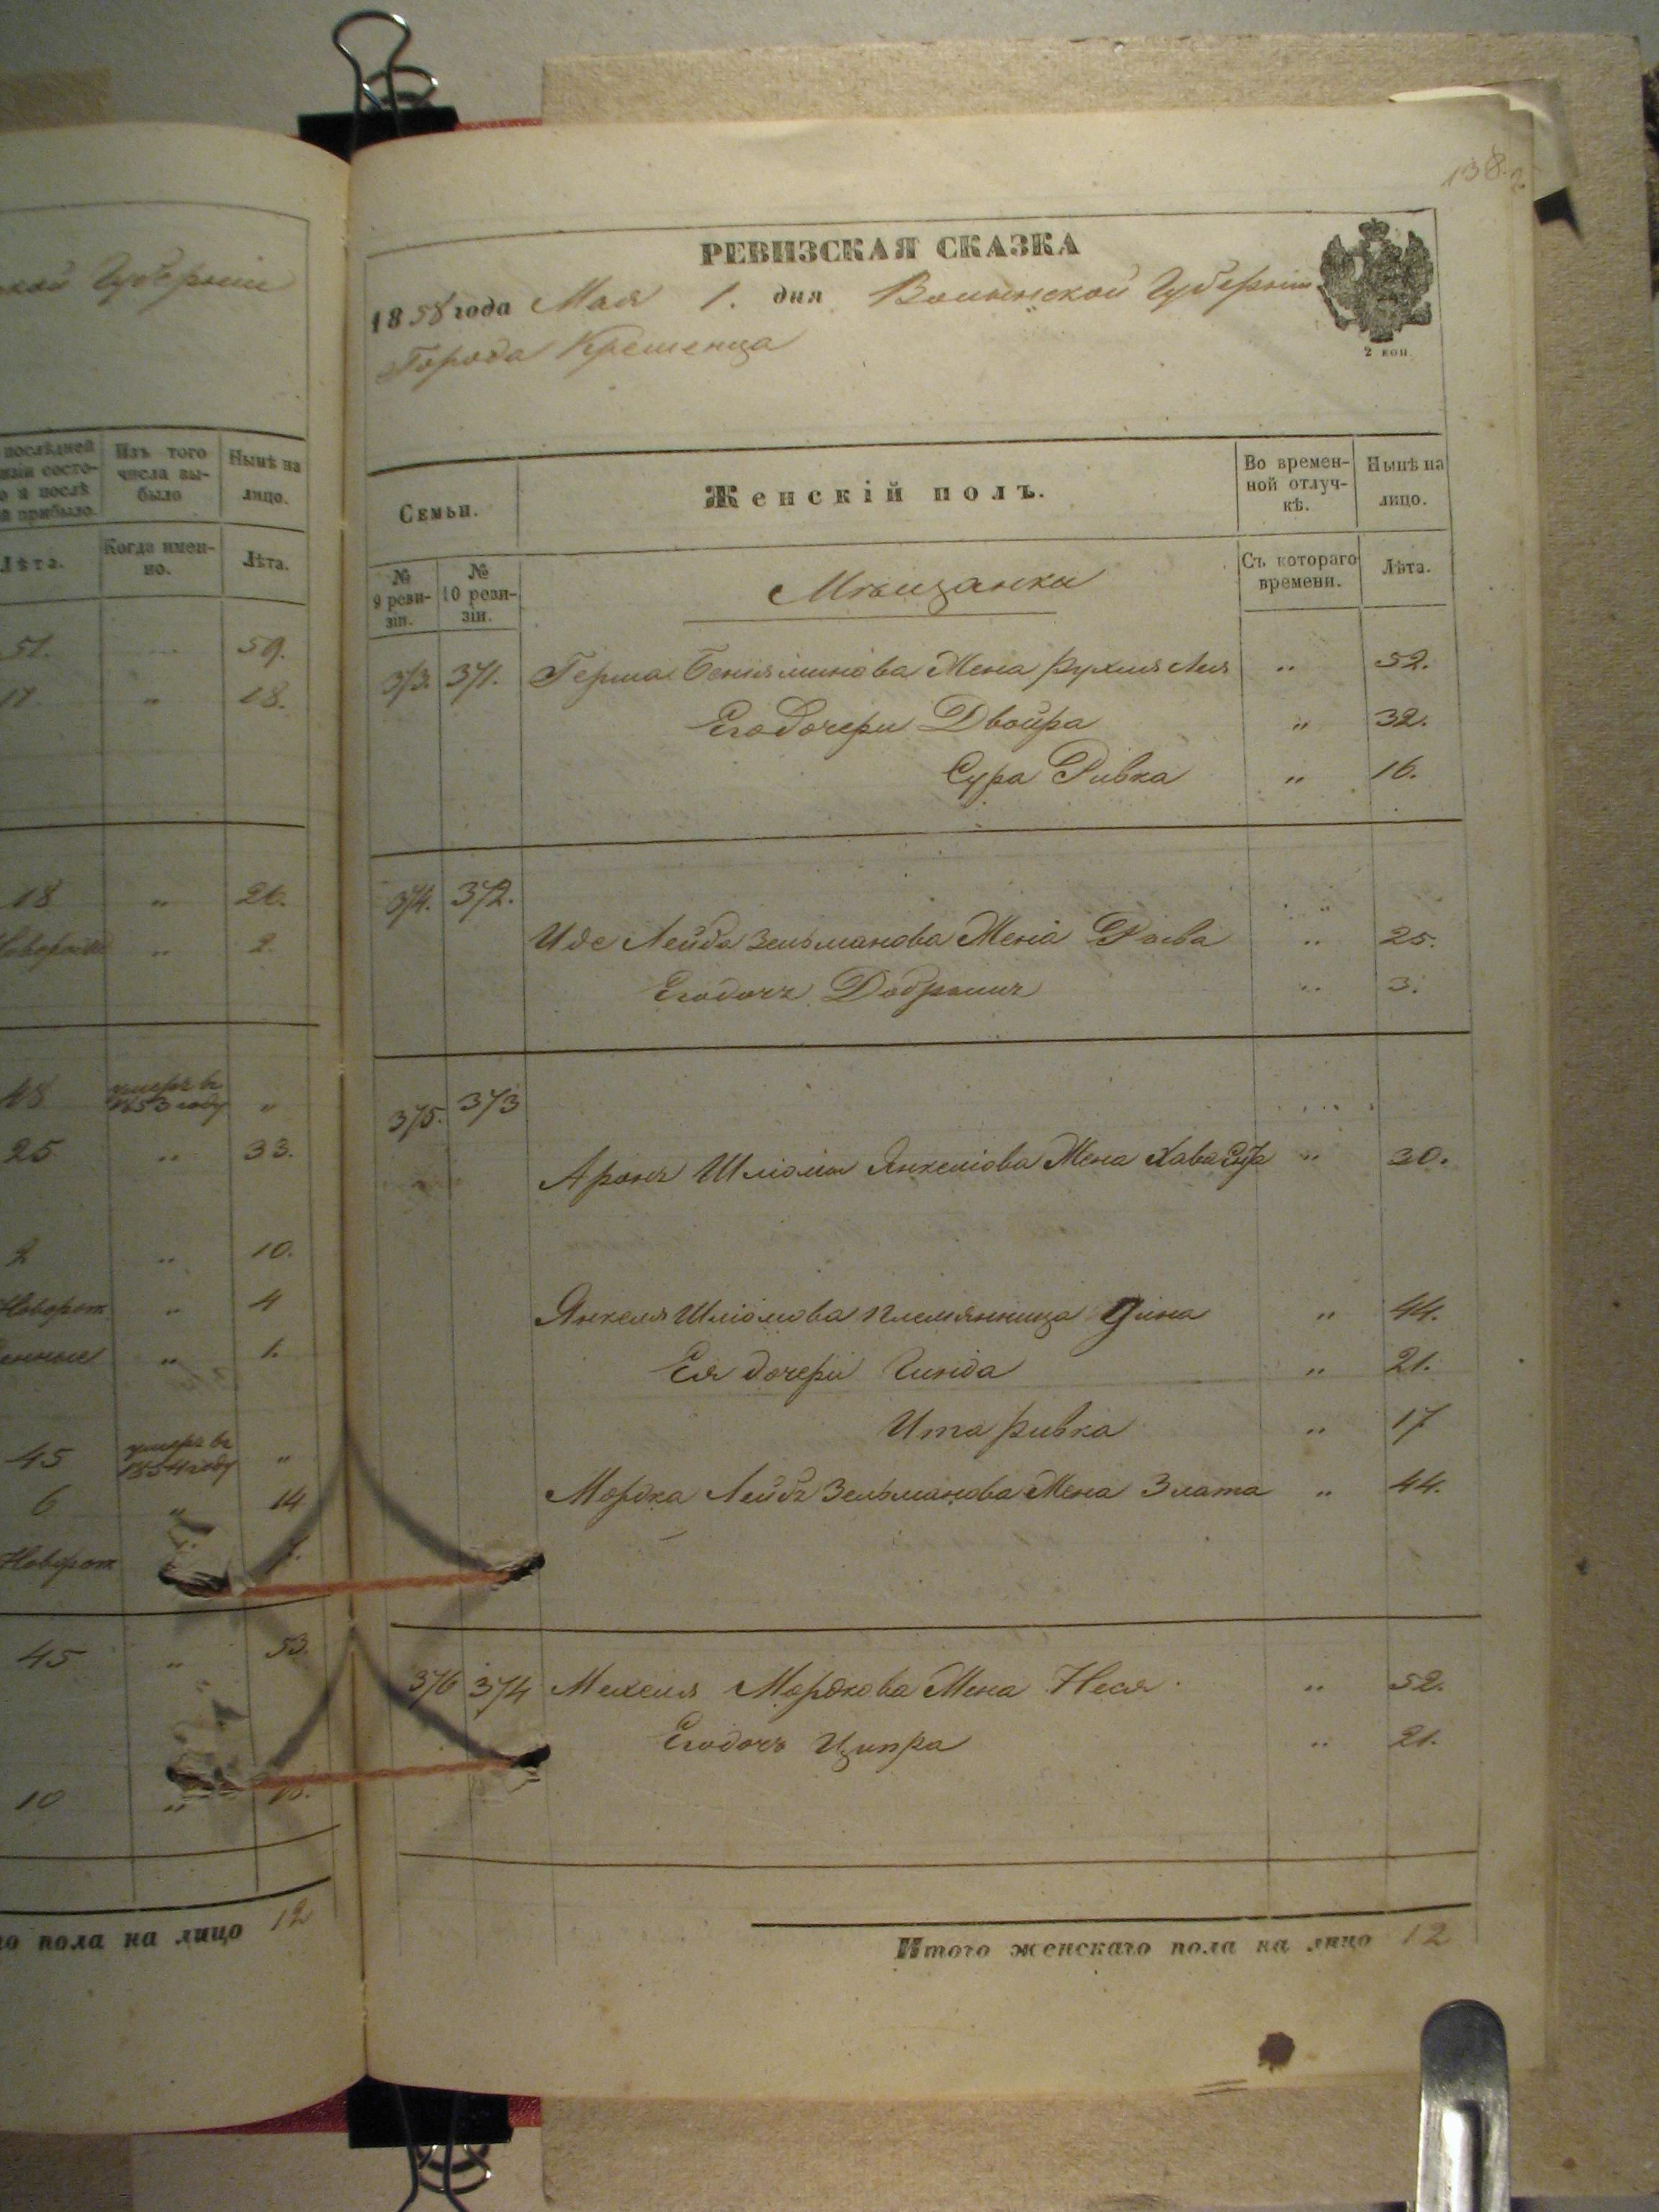 кой Губерніи
последней
Изъ того
Нынѣ на
числа вы-
было
лицо.
и послѣ
прибыло
Лѣта.
Когда имен-
но.
Лѣта.
51. 59.
17 „ 18.
18 „ 26.
„ 2.
48 умеръ въ 1853 году „
25 „ 33.
2 „ 10.
Новорож „ 4
енные „ 1.
45 умеръ въ 1854 году „
6 „ 14
Новорож
45 „ 53.
10 „
го пола на лицо 12
138.
РЕВИЗСКАЯ СКАЗКА
1858 года Мая 1. дня Волынской Губерніи
Города Кременца
2 коп.
Семьи.
Женскій полъ.
Во времен-
ной отлуч-
кѣ.
Нынѣ на
лицо.
№
9 реви-
зіи.
№
10 реви-
зіи.
Мѣщанки
Съ котораго
времени.
Лѣта.
373. 371. Герша Беніяминова Жена Рухля Лея „ 52.
Его Дочери Двойра „ 32.
Сура Ривка „ 16.
374. 372.
Иде Лейба Зельманова Жена „ 25.
Его дочь „ 3.
375. 373
Аронъ Шліома Янкеліова Жена Хава Сура „ 30.
Янкеля Шліомова племянница „ 44.
Ея дочери „ 21.
Ита Ривка „ 17
Мордка Лейбъ Зельманова Жена Злата „ 44.
376 374 Мехеля Мордкова Жена Неся „ 52.
Его дочь Ципра „ 21.
Итого женскаго пола на лицо 12